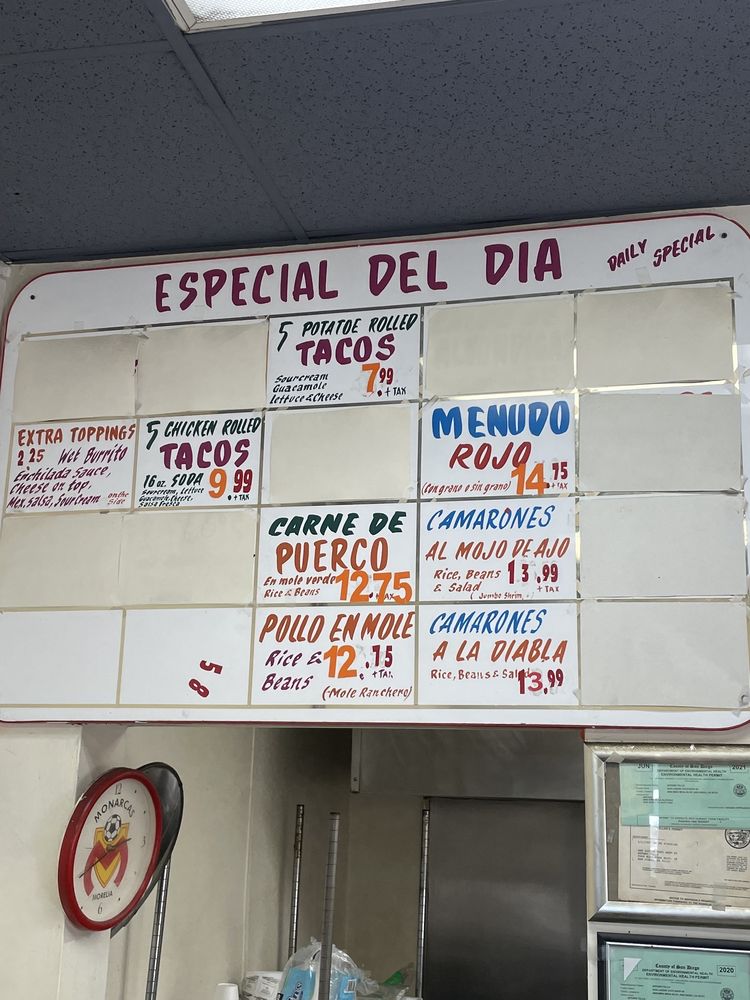 ESPECIAL DEL DIA
DAILY SPECIAL
5 POTATOE ROLLED
TACOS
Sourcream
Guacamole
lettuce & Cheese
7.99
+ TAX
EXTRA TOPPINGS
2 25 Wet Burrito
Enchilada Sauce,
Cheese on top,
Mex. Salsa, Sour Cream on the Side
5 CHICKEN ROLLED
TACOS
16 oz. SODA 9 99
Sourcream, Lettuce
Guacamole, Cheese,
Salsa Fresca
+ TAX
MENUDO
ROJO
(Con grano o sin grano) 14.75
+ TAX
CARNE DE
PUERCO
En mole verde 12.75
Rice & Beans
CAMARONES
AL MOJO DE AJO
Rice, Beans 13.99
& Salad + TAX
(Jumbo Shrim
POLLO EN MOLE
Rice & 12.75
Beans + TAX
(Mole Ranchero)
CAMARONES
A LA DIABLA
Rice, Beans & Salad
13.99
58
12
MONARCAS
3
MORELIA
6
JUN
County of San Diego
2021
DEPARTMENT OF ENVIRONMENTAL HEALTH
ENVIRONMENTAL HEALTH PERMIT
County of San Diego
2020
DEPARTMENT OF ENVIRONMENTAL HEALTH
ENVIRONMENTAL HEALTH PERMIT